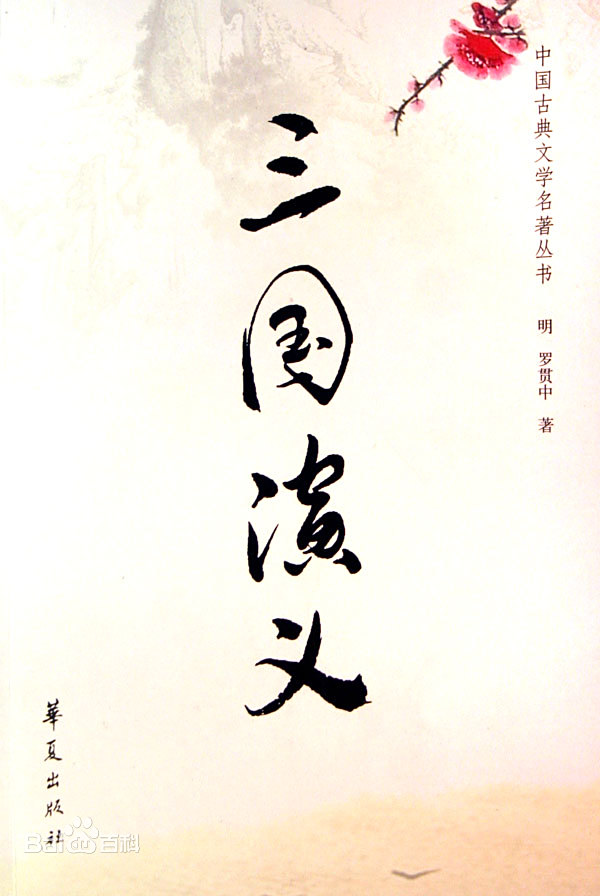 中国古典文学名著丛书
明 罗贯中 著
三国演义
華夏出版社
Bai百科